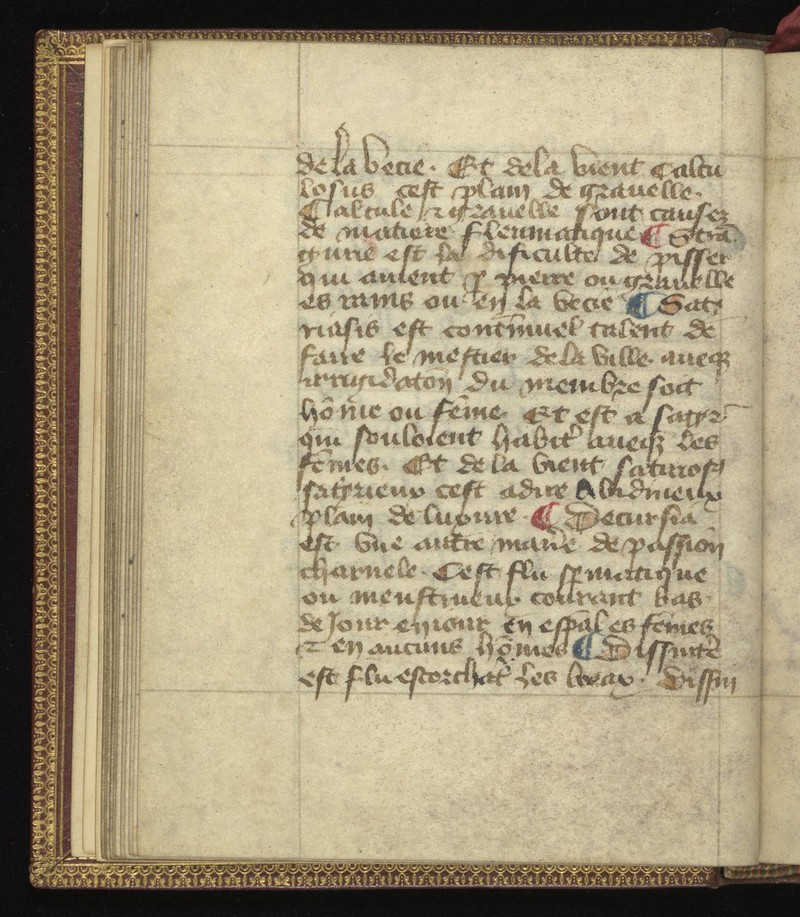 de la vecie. Et de la vient Calcu
losus cest plain de grauelle.
¶ Calcule ⁊ grauelle sont causez
de matiere fleumatique ¶ Strā
gurie est la dificulte de pisser
qui auient ꝑ pierre ou grauelle
es rains ou en la vecie ¶ Sat
riasis est contīnuel talent de
faire le mestier de la ville aueqꝫ
du membre soit
hōme ou fēme. Et est a satyr
qui souloient habit' aueqꝫ les
fēmes. Et de la vient
satyrieux cest adire
plain de luxure. ¶ Decursia
est vne autre manē de passion
charnele. Cest flu sꝑmatique
ou menstrueux courant bas
de jour en iour en esp̄al es fēmes
⁊ en aucuns hōmes ¶ Dissinte
est flu escorchāt les boiax. Dissin